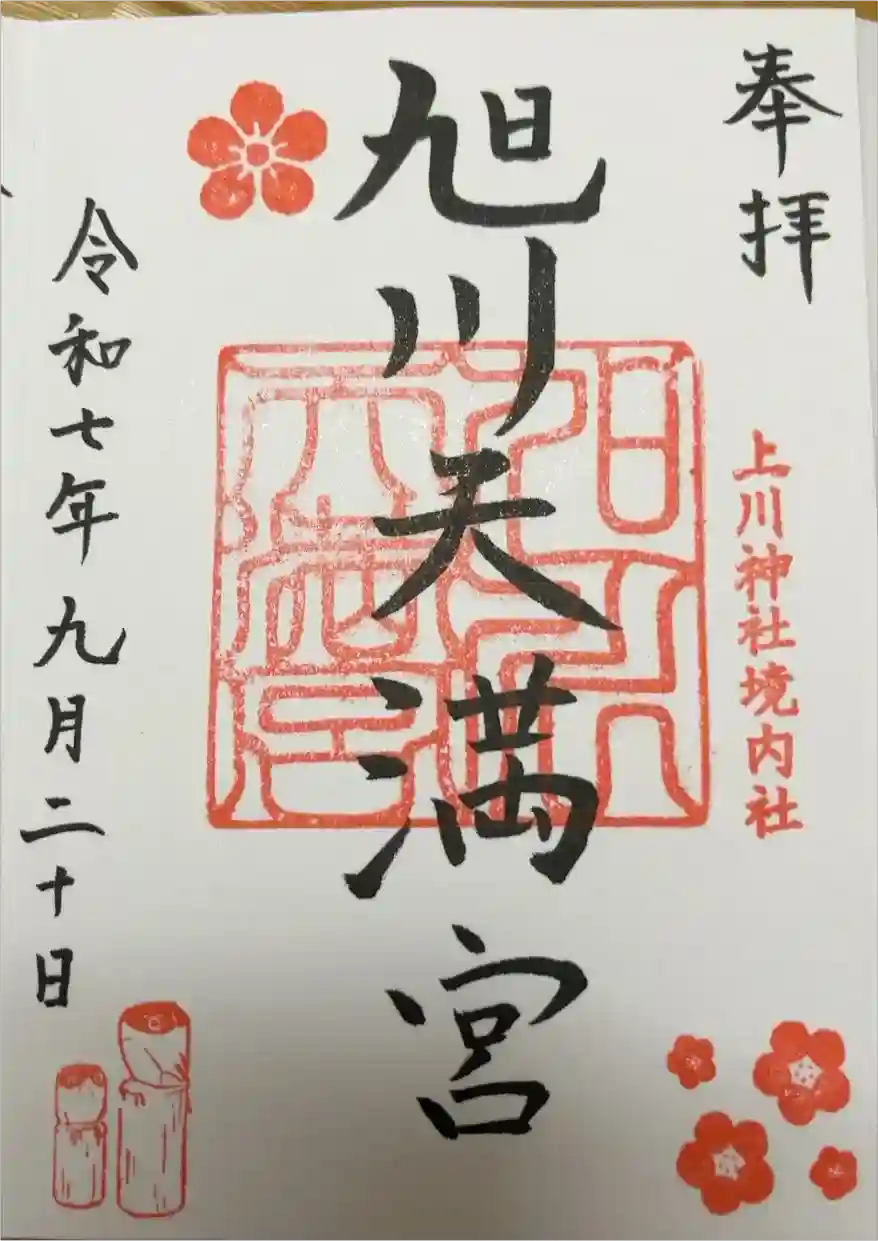 奉拝
上川神社境内社
旭川天満宮
令和七年九月二十日